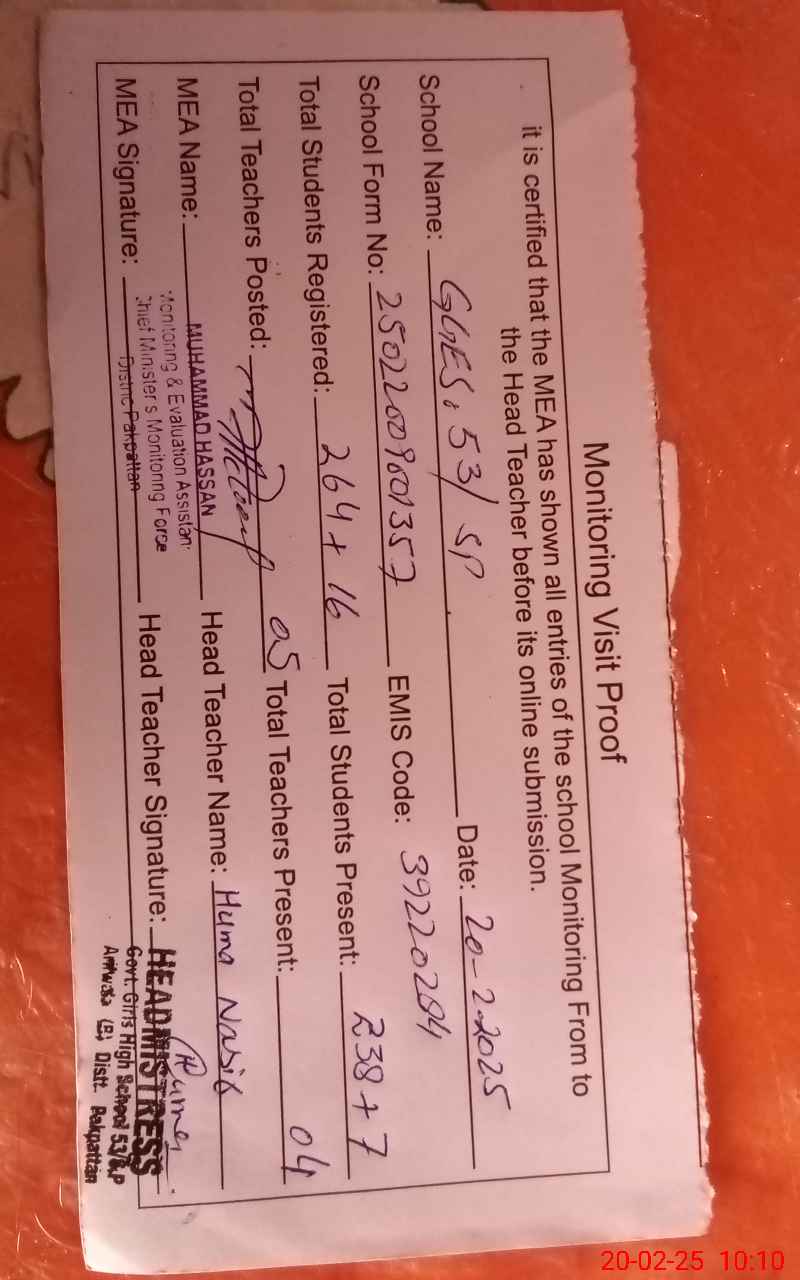 Monitoring Visit Proof
it is certified that the MEA has shown all entries of the school Monitoring From to
the Head Teacher before its online submission.
School Name: GGES. 53/SP Date: 20-2-2025
School Form No: 2502200901357 EMIS Code: 39220284
Total Students Registered: 264+16 Total Students Present: 238+7
Total Teachers Posted: 05 Total Teachers Present: 04
MEA Name: MUHAMMAD HASSAN Head Teacher Name: Huma Nasir
Monitoring & Evaluation Assistan
Chief Minister's Monitoring Force
MEA Signature: District Pakpattan Head Teacher Signature: HEADMISTRESS
Govt. Girls High School 53/S.P
Distt. Pakpattan
20-02-25 10:10